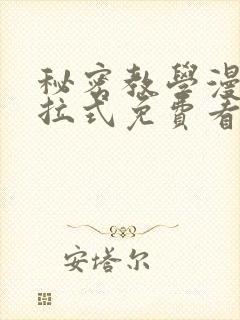 秘密教學漫
拉式免費看
安塔尔